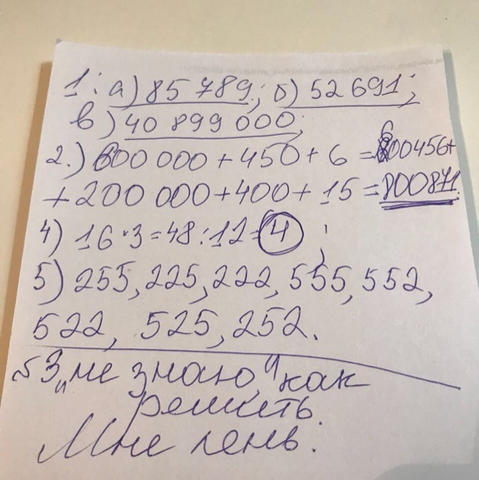 1: а) 85 789; б) 52 691;
в) 40 899 000;
2.) 600 000 + 450 + 6 = 600456+
+ 200 000 + 400 + 15 = 800871.
4) 16 · 3 = 48 : 12 = 4 ;
5) 255, 225, 222, 555, 552,
522, 525, 252.
3 „не знаю" как
решить.
Мне лень.